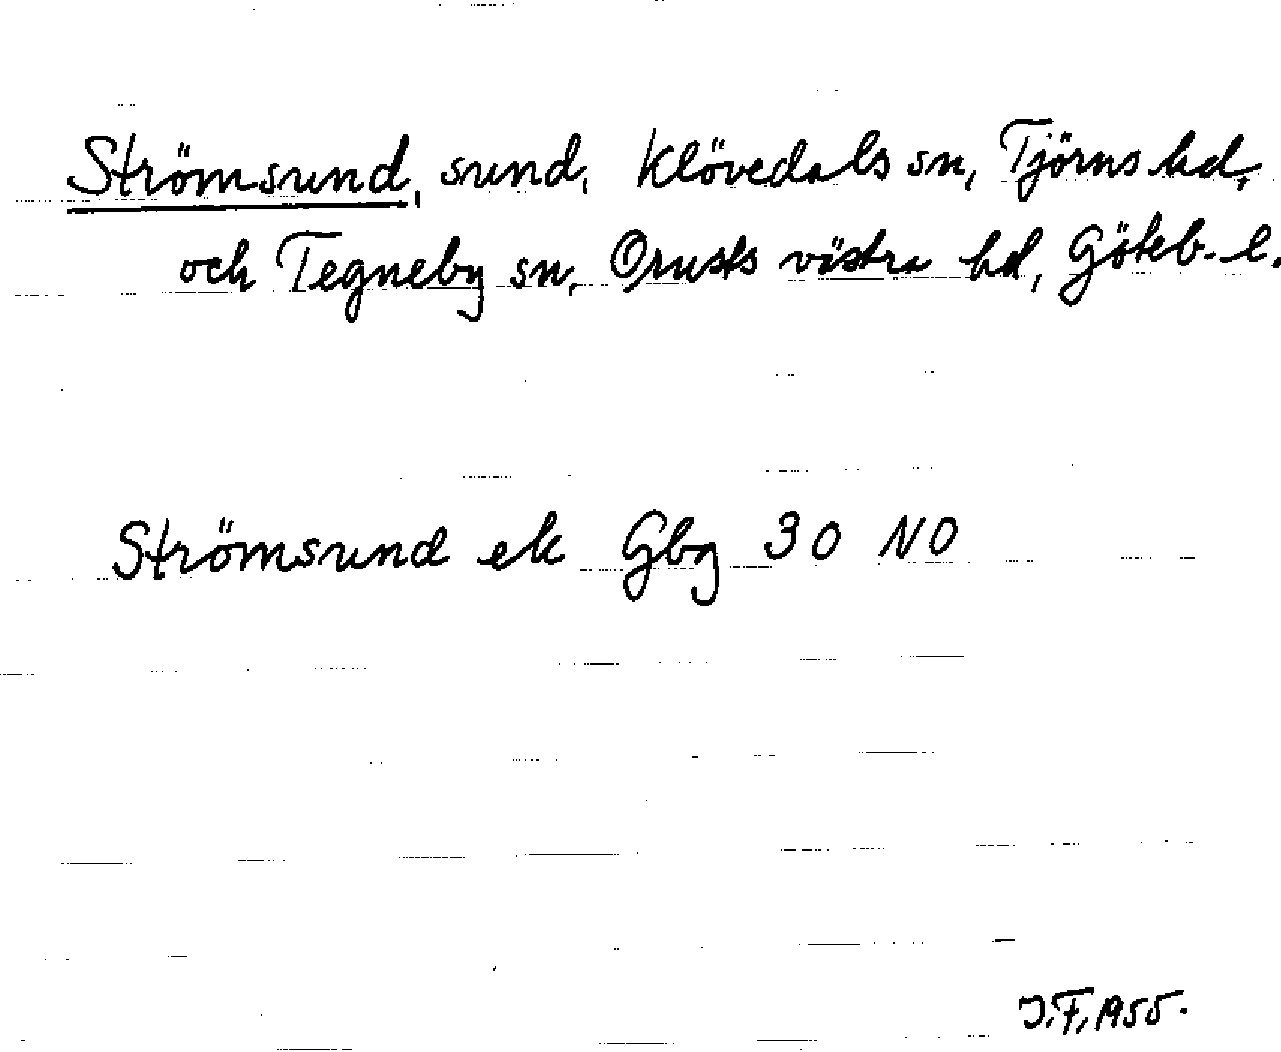 Strömsund, sund, Klövedals sn, Tjörns hd,
och Tegneby sn, Orusts västra hd, Göteb. l.
Strömsund ek Gbg 30 NO
J.F. 1955.